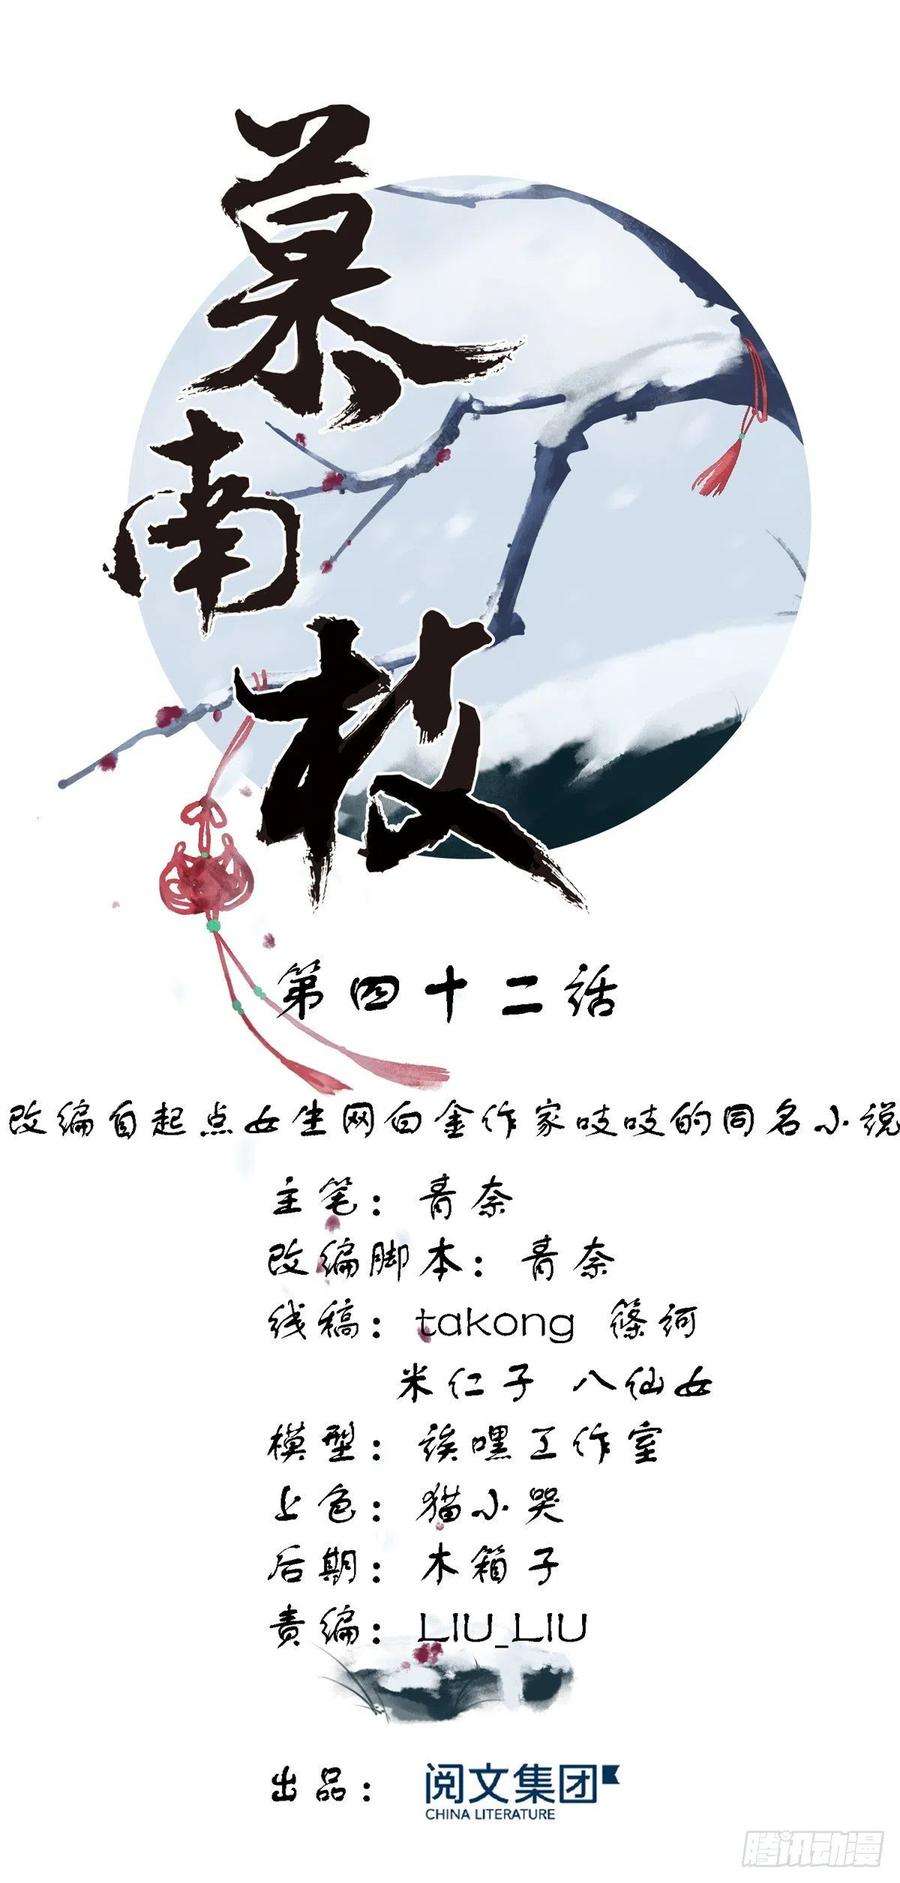 慕南枝
第四十二话
改编自起点女生网白金作家吱吱的同名小说
主笔：青奈
改编脚本：青奈
线稿：takong 篠河
米仁子 八仙女
模型：诶嘿工作室
上色：猫小哭
后期：木箱子
责编：LIU_LIU
出品：阅文集团
CHINA LITERATURE
腾讯动漫